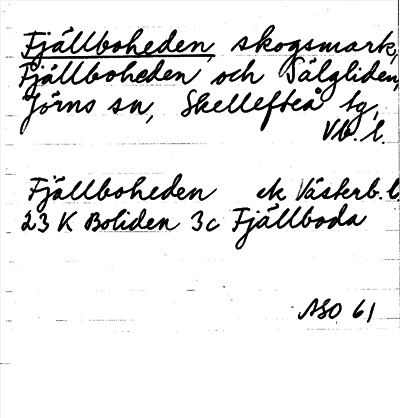 Fjällboheden, skogsmark,
Fjällboheden och Sälgliden,
Jörns sn, Skellefteå tg,
Vb. l.
Fjällboheden ek Västerb. l.
23 K Boliden 3c Fjällboda
ASO 61